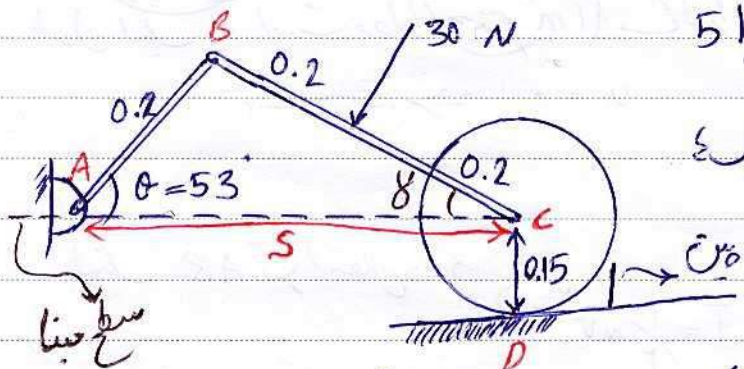 B
30 N
5 k
0.2
0.2
A
θ = 53°
γ
0.2
C
S
0.15
سطح مبنا
D